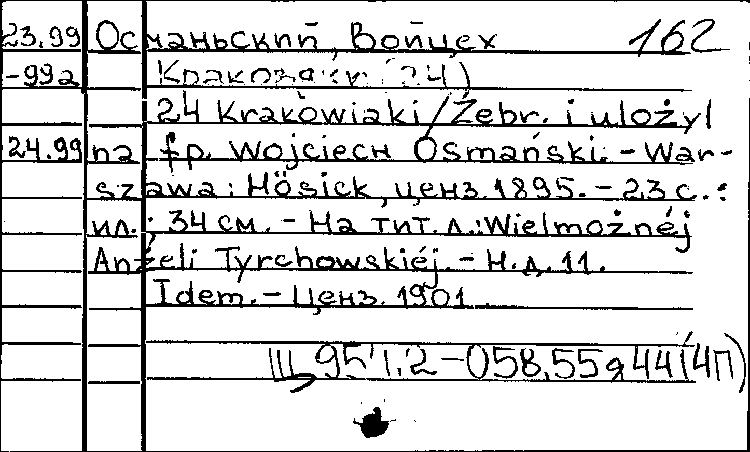 23.99 Османьский, Войцех 162
-99а Краковяки (24)
24 Krakowiaki / Żebr. i ułożył
24.99 na fp. Wojciech Osmański. - War-
szawa: Hösick, ценз. 1895. - 23 с.:
ил.; 34 см. - На тит. л.: Wielmożnéj
Anżeli Tyrchowskiéj. - Н.д. 11.
Idem. - Ценз. 1901
Щ 951.2-058.55я44(4П)